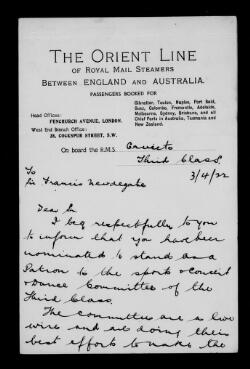 THE ORIENT LINE
OF ROYAL MAIL STEAMERS
BETWEEN ENGLAND AND AUSTRALIA.
PASSENGERS BOOKED FOR
Gibraltar, Toulon, Naples, Port Said,
Suez, Colombo, Fremantle, Adelaide,
Melbourne, Sydney, Brisbane, and all
Chief Ports in Australia, Tasmania and
New Zealand.
Head Offices:
FENCHURCH AVENUE, LONDON.
West End Branch Office:
28, COCKSPUR STREET, S.W.
On board the R.M.S. Orsova
Third Class
3/4/22
To
Sir Francis Newdegate
Dear Sir
I beg respectfully to you
to inform that you have been
nominated to stand as a
Patron to the sports & Concert
& Dance Committee of the
Third Class.
The Committee are a live
wire and are doing their
best efforts to make the